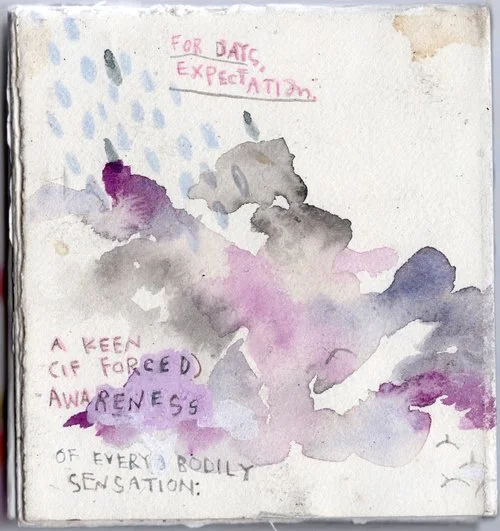 FOR DAYS,
EXPECTATION.
A KEEN
(IF FORCED)
AWARENESS
OF EVERY BODILY
SENSATION: